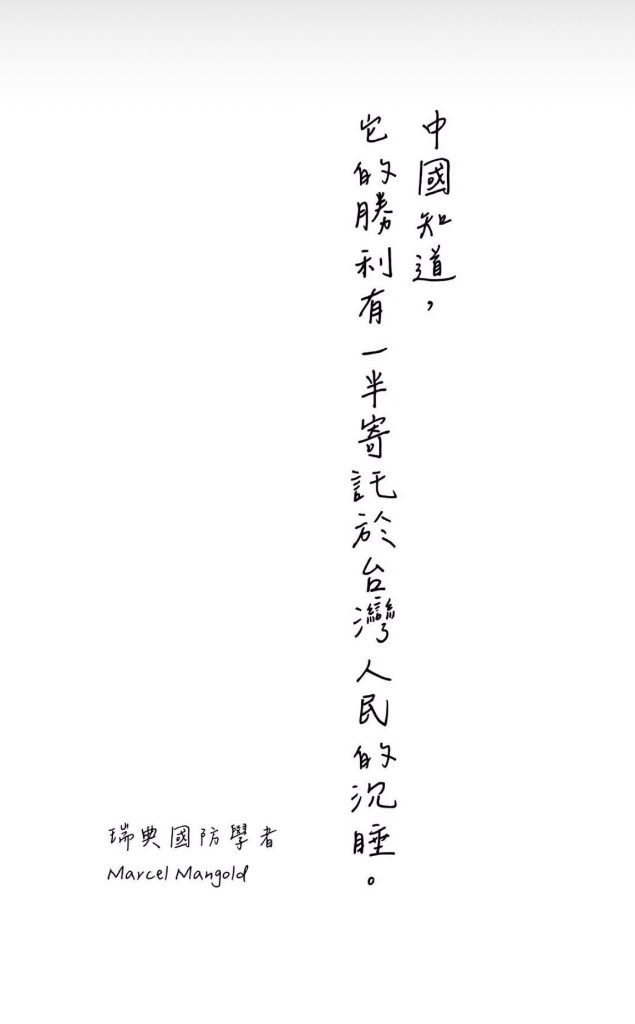 中國知道，
它的勝利有一半寄託於台灣人民的沉睡。
瑞典國防學者
Marcel Mangold